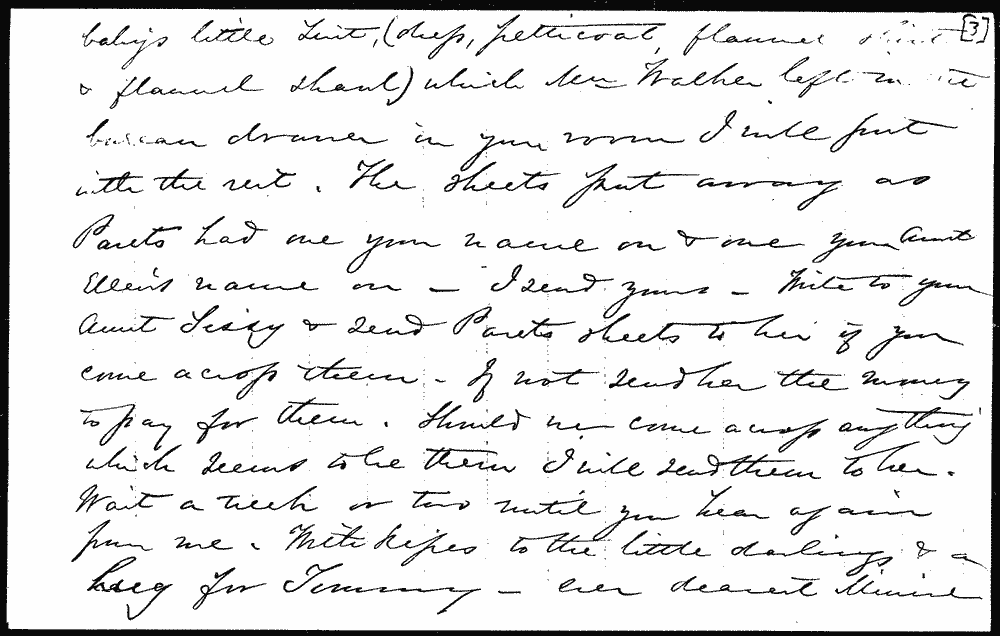 baby's little suit, (dress, petticoat, flannel skirt [3]
& flannel shawl) which Mrs Walker left in the
bureau drawer in your room I will put
with the rest. The sheets put away as
Parets had one your name on & one your Aunt
Ellen's name on – I send yours – Write to your
Aunt Lissy & send Parets sheets to her if you
come across them – If not send her the money
to pay for them. Should we come across anything
which seems to be them I will send them to her.
Wait a week or two until you hear again
from me. With kisses to the little darlings & a
hug for Tommy – ever dearest Minnie